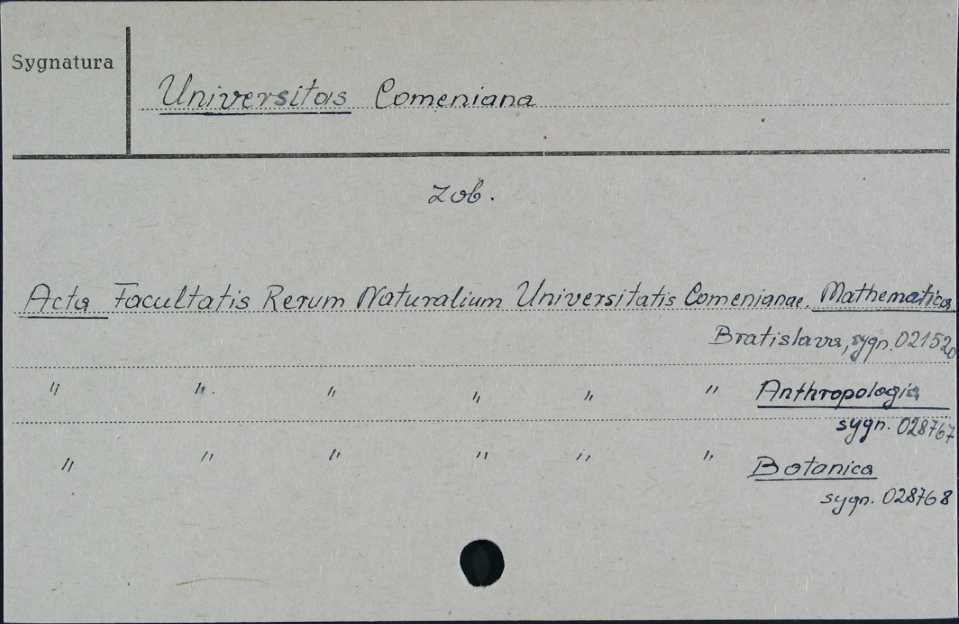 Sygnatura
Universitas Comeniana
zob.
Acta Facultatis Rerum Naturalium Universitatis Comenianae. Mathematica
Bratislava, sygn. 021520
" " " " " " Anthropologia
sygn. 028767
" " " " " " Botanica
sygn. 028768